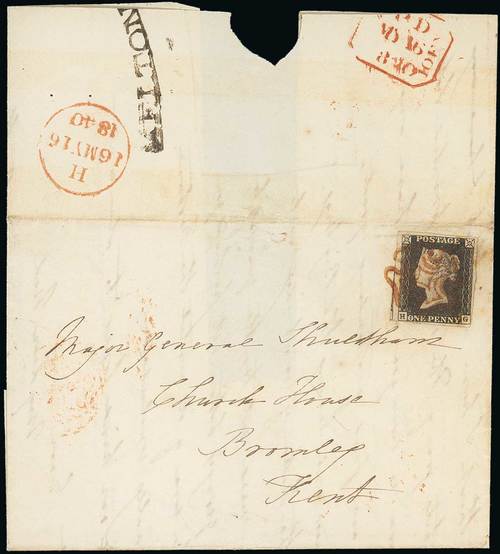 H
16MY16
1840
POSTAGE
H ONE PENNY G
Major General Shuldham
Church House
Bromley
Kent